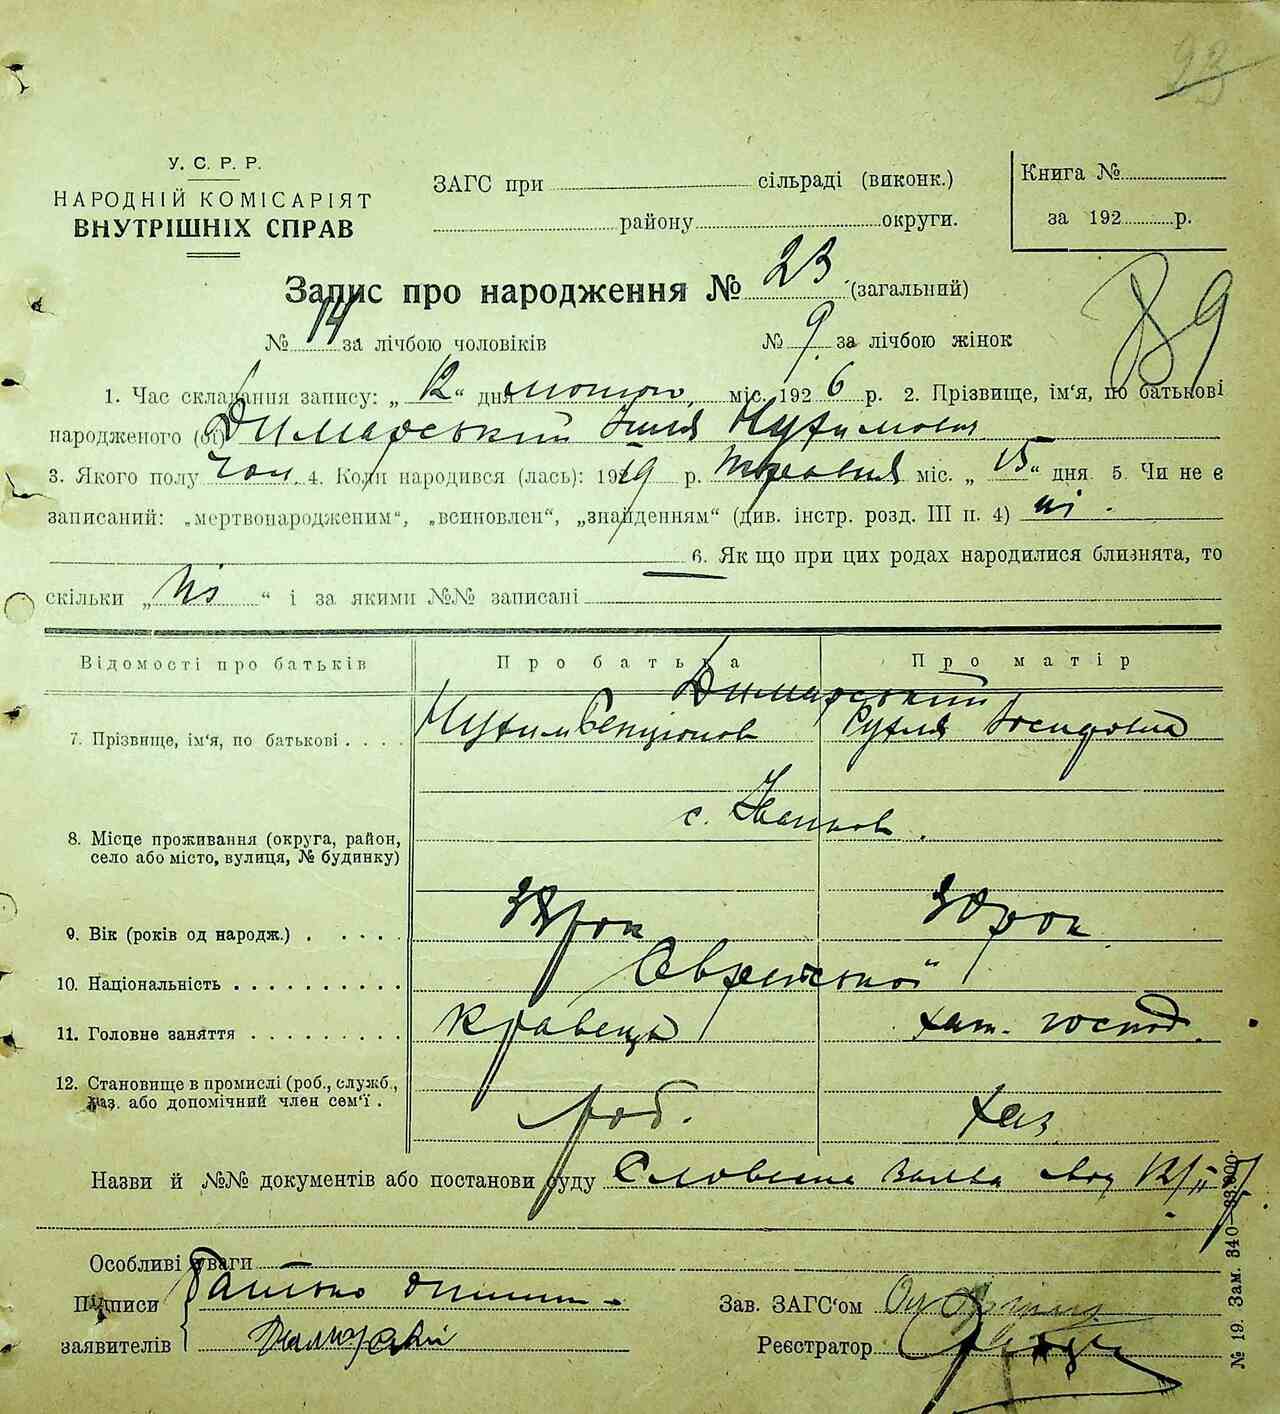 93
У. С. Р. Р.
НАРОДНІЙ КОМІСАРІЯТ
ВНУТРІШНІХ СПРАВ
ЗАГС при сільраді (виконк.)
району округи.
Книга №
за 192 р.
Запис про народження № 23 (загальний)
89
№ 14 за лічбою чоловіків № 9 за лічбою жінок
1. Час складання запису: „ 12 “ дня лютого міс. 192 6 р. 2. Прізвище, ім'я, по батькові
народженого (ої) Димарський Нухимович
3. Якого полу чол. 4. Коли народився (лась): 1919 р. травня міс. „ 15 “ дня. 5. Чи не є
записаний: „мертвонародженим“, „всиновлен“, „знайденням“ (див. інстр. розд. III п. 4) ні .
6. Як що при цих родах народилися близнята, то
скільки „ ні “ і за якими №№ записані
Відомості про батьків Про батька Про матір
Димарський
7. Прізвище, ім'я, по батькові . . . . Нухим Бенционов Рухля Йосиповна
с. Іванков .
8. Місце проживання (округа, район,
село або місто, вулиця, № будинку)
9. Вік (років од народж.) . . . . . рок 30 рок
10. Національність . . . . . . . . . . Єврейської
11. Головне заняття . . . . . . . . . кравець хат. господ.
12. Становище в промислі (роб., служб.,
хаз. або допомічний член сем'ї . роб. хаз
Назви й №№ документів або постанови суду Словесна заява від 12/II
Особливі уваги
Підписи Батько дитини -
заявителів
Зав. ЗАГС'ом
Реєстратор
№ 19. Зам. 340—33.000.